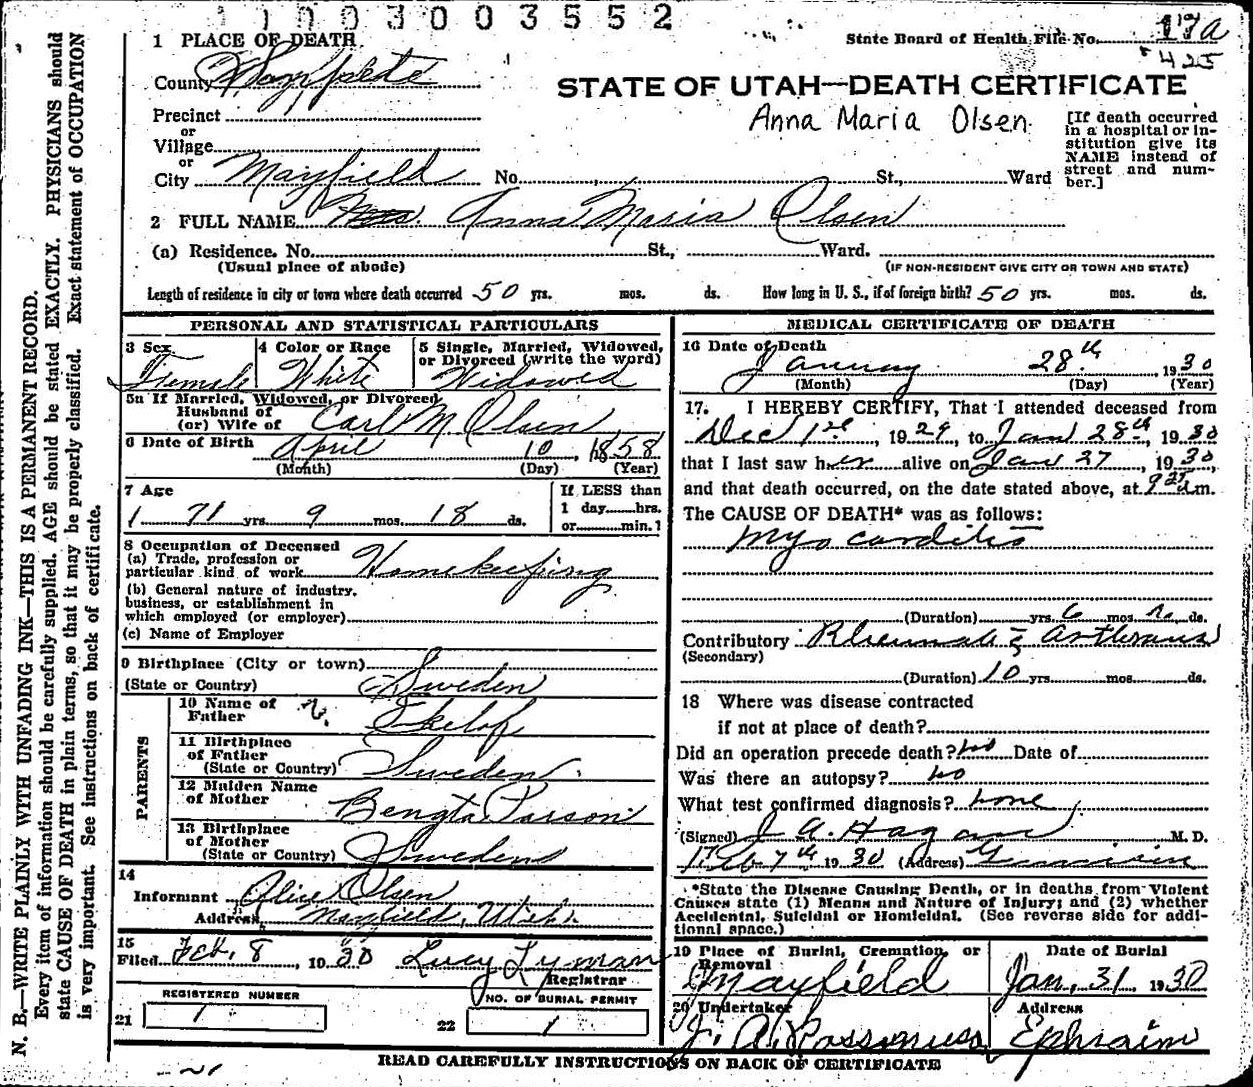 1003003552
1 PLACE OF DEATH
State Board of Health File No. 17a
425
County
STATE OF UTAH—DEATH CERTIFICATE
Anna Maria Olsen
Precinct
or
Village
or
City Mayfield No. St., Ward
[If death occurred
in a hospital or in-
stitution give its
NAME instead of
street and num-
ber.]
2 FULL NAME Mrs. Anna Maria Olsen
(a) Residence. No. St., Ward.
(Usual place of abode) (IF NON-RESIDENT GIVE CITY OR TOWN AND STATE)
Length of residence in city or town where death occurred 50 yrs. mos. ds. How long in U. S., if of foreign birth? 50 yrs. mos. ds.
PERSONAL AND STATISTICAL PARTICULARS
3 Sex 4 Color or Race 5 Single, Married, Widowed,
or Divorced (write the word)
Female White Widowed
5a If Married, Widowed, or Divorced
Husband of
(or) Wife of Carl M. Olsen
6 Date of Birth April 10, 1858
(Month) (Day) (Year)
7 Age If LESS than
1 day hrs.
71 yrs. 9 mos. 18 ds. or min.
8 Occupation of Deceased
(a) Trade, profession or
particular kind of work Homekeeping
(b) General nature of industry,
business, or establishment in
which employed (or employer)
(c) Name of Employer
9 Birthplace (City or town)
(State or Country) Sweden
PARENTS
10 Name of
Father
11 Birthplace
of Father
(State or Country) Sweden
12 Maiden Name
of Mother Bengta Parson
13 Birthplace
of Mother
(State or Country) Sweden
14
Informant Alice Olsen
Address Mayfield, Utah.
15
Filed Feb. 8, 1930 Lucy Lyman
Registrar
REGISTERED NUMBER
21 1
NO. OF BURIAL PERMIT
22 1
MEDICAL CERTIFICATE OF DEATH
16 Date of Death
January 28th, 1930
(Month) (Day) (Year)
17. I HEREBY CERTIFY, That I attended deceased from
Dec 1st, 1929, to Jan 28th, 1930
that I last saw her alive on Jan 27, 1930,
and that death occurred, on the date stated above, at m.
The CAUSE OF DEATH* was as follows:
Myocarditis
(Duration) yrs. 6 mos. ds.
Contributory
(Secondary)
(Duration) 10 yrs. mos. ds.
18 Where was disease contracted
if not at place of death?
Did an operation precede death? no Date of
Was there an autopsy? no
What test confirmed diagnosis? none
(Signed) J. A. Hagan M. D.
Feb 7th 1930 (Address) Gunnison
*State the Disease Causing Death, or in deaths from Violent
Causes state (1) Means and Nature of Injury; and (2) whether
Accidental, Suicidal or Homicidal. (See reverse side for addi-
tional space.)
19 Place of Burial, Cremation, or
Removal
Mayfield
Date of Burial
Jan. 31 1930
20 Undertaker Address
Ephraim
READ CAREFULLY INSTRUCTIONS ON BACK OF CERTIFICATE
N. B.—WRITE PLAINLY WITH UNFADING INK—THIS IS A PERMANENT RECORD.
Every item of information should be carefully supplied. AGE should be stated EXACTLY. PHYSICIANS should
state CAUSE OF DEATH in plain terms, so that it may be properly classified. Exact statement of OCCUPATION
is very important. See instructions on back of certificate.